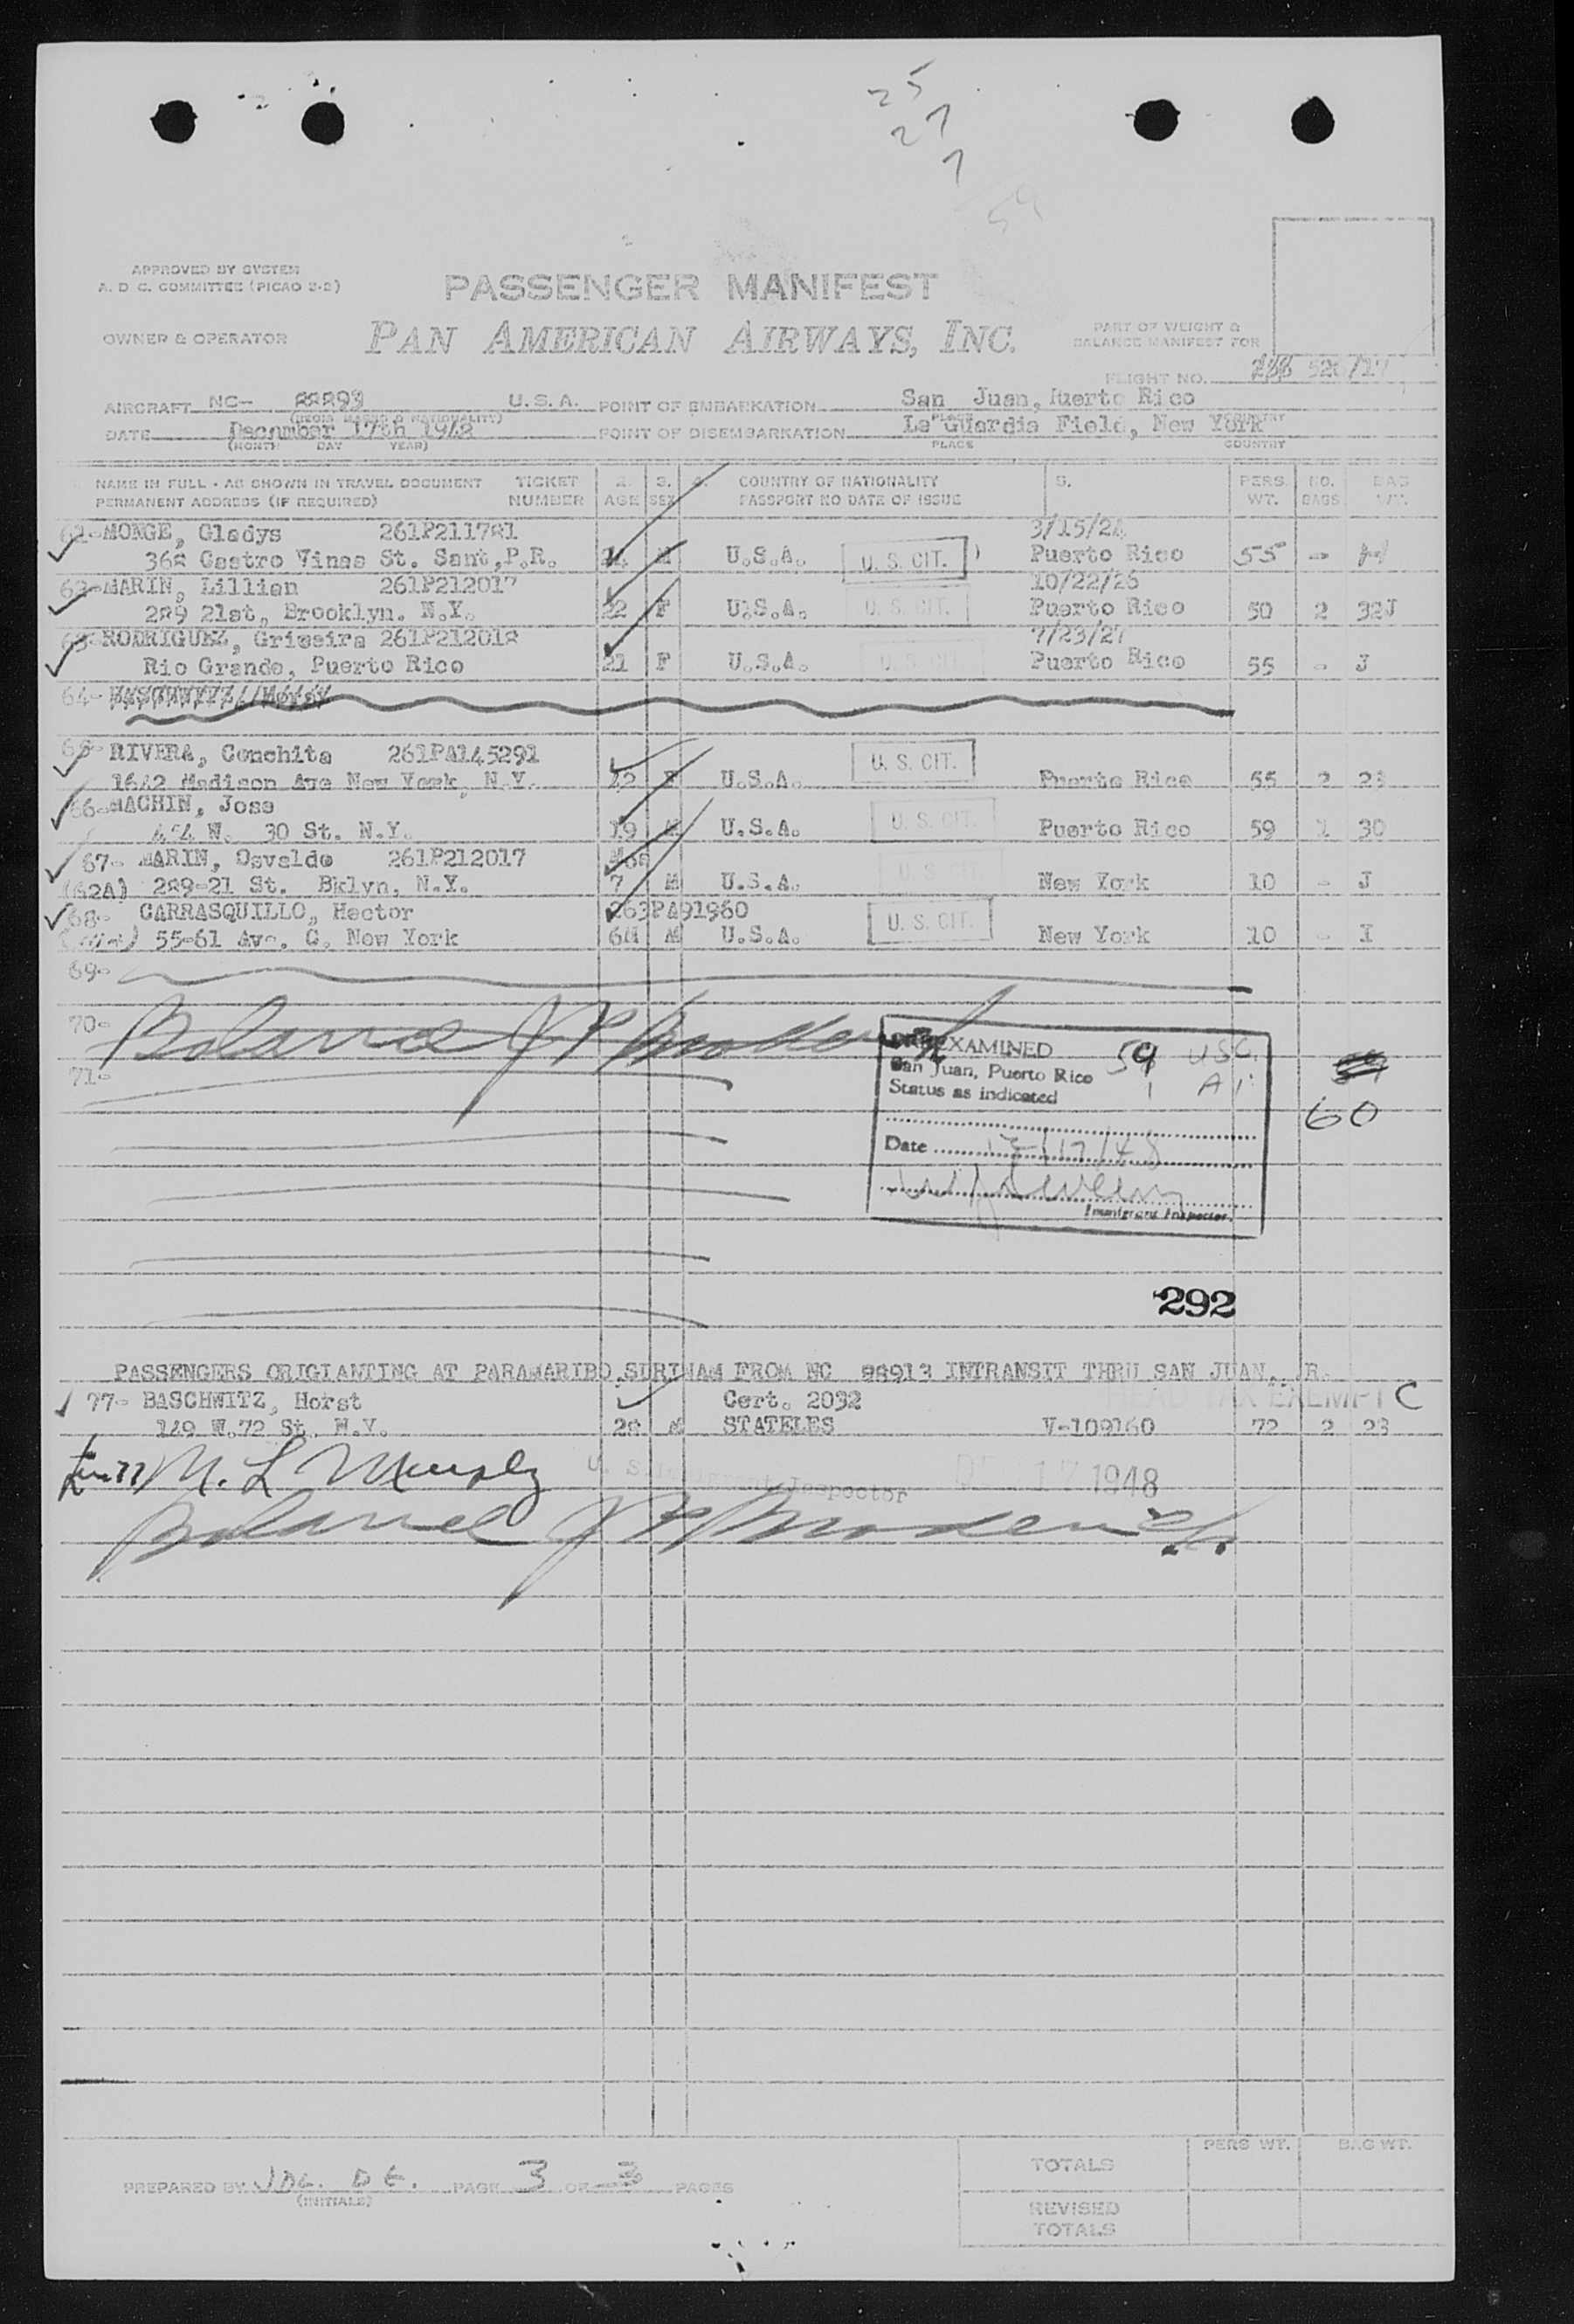 25
27
7
59
APPROVED BY SYSTEM
A. D C. COMMITTEE (PICAO 2-2)
PASSENGER MANIFEST
OWNER & OPERATOR PAN AMERICAN AIRWAYS, INC.
PART OF WEIGHT &
BALANCE MANIFEST FOR
FLIGHT NO. 526/17
AIRCRAFT NC- U.S.A. POINT OF EMBARKATION San Juan, Puerto Rico
(REGIS MARKS & NATIONALITY) PLACE COUNTRY
DATE December 17th 1948 POINT OF DISEMBARKATION La Guardia Field, New York
(MONTH DAY YEAR) PLACE COUNTRY
NAME IN FULL - AS SHOWN IN TRAVEL DOCUMENT TICKET 2. 3. 4. COUNTRY OF NATIONALITY 5. PERS. NO. BAG
PERMANENT ADDRESS (IF REQUIRED) NUMBER AGE SEX PASSPORT NO DATE OF ISSUE WT. BAGS WT.
61- MONGE, Gladys 261P211781 3/15/24
368 Castro Vinas St. Sant, P.R. U.S.A. U. S. CIT. Puerto Rico 55 -
62- MARIN, Lillian 261P212017 10/22/26
289 21st, Brooklyn. N.Y. 22 F U.S.A. U. S. CIT. Puerto Rico 50 2 32J
63- RODRIGUEZ, Griseira 261P212018 7/23/27
Rio Grande, Puerto Rico 21 F U.S.A. U. S. CIT. Puerto Rico 55 - J
64-
65- RIVERA, Conchita 261PA145291
1642 Madison Ave New York, N.Y. 42 F U.S.A. U. S. CIT. Puerto Rico 55 2 28
66- MACHIN, Jose
454 W. 30 St. N.Y. 19 M U.S.A. U. S. CIT. Puerto Rico 59 1 30
67- MARIN, Osvaldo 261P212017 Mos
(62A) 289-21 St. Bklyn, N.Y. 7 M U.S.A. U. S. CIT. New York 10 - J
68- CARRASQUILLO, Hector 263PA91960
55-61 Ave. C. New York 6M M U.S.A. U. S. CIT. New York 10 - I
69-
70-
71-
EXAMINED 59 USC
San Juan, Puerto Rico 1 A
Status as indicated
60
Date 12/17/48
Immigrant Inspector
292
PASSENGERS ORIGIANTING AT PARAMARIBO, SURINAM FROM NC 88913 INTRANSIT THRU SAN JUAN, .R.
77- BASCHWITZ, Horst Cert. 2032 HEAD TAX EXEMPT C
149 W. 72 St. N.Y. 28 M STATELES V-109160 72 2 28
Line 77 M. L. Murphy U. S. Immigrant Inspector 17 1948
PREPARED BY PAGE 3 OF 3 PAGES
(INITIALS)
PERS WT. BAG WT.
TOTALS
REVISED
TOTALS